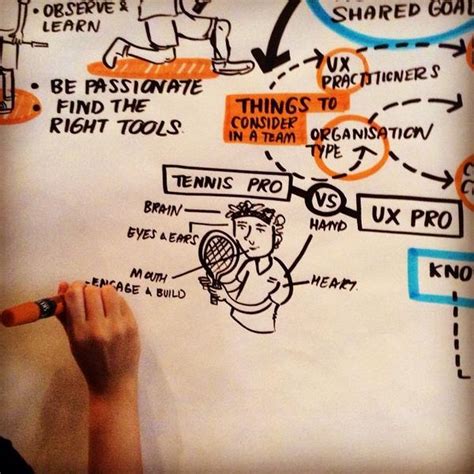 • OBSERVE &
LEARN
• BE PASSIONATE
• FIND THE
RIGHT TOOLS.
SHARED GOA
UX
PRACTITIONERS
THINGS TO
CONSIDER
IN A TEAM
ORGANISATION
TYPE
TENNIS PRO
VS
UX PRO
BRAIN
EYES & EARS
MOUTH
-ENGAGE & BUILD
HAND
HEART
KNO